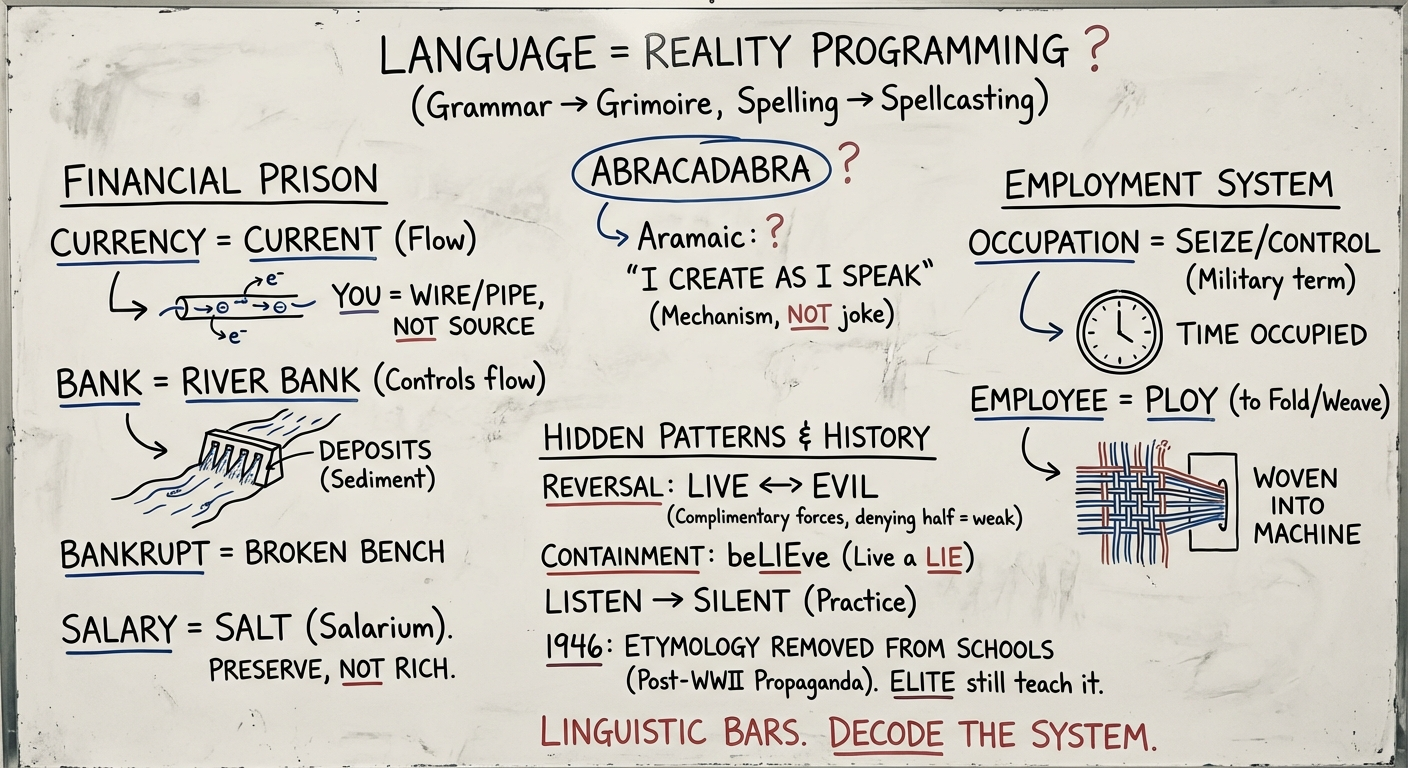 LANGUAGE = REALITY PROGRAMMING ?
(Grammar → Grimoire, Spelling → Spellcasting)
FINANCIAL PRISON
CURRENCY = CURRENT (Flow)
e⁻
e⁻
YOU = WIRE/PIPE,
NOT SOURCE
BANK = RIVER BANK (Controls flow)
DEPOSITS
(Sediment)
BANKRUPT = BROKEN BENCH
SALARY = SALT (Salarium).
PRESERVE, NOT RICH.
ABRACADABRA ?
Aramaic: ?
"I CREATE AS I SPEAK"
(Mechanism, NOT joke)
HIDDEN PATTERNS & HISTORY
REVERSAL: LIVE ↔ EVIL
(Complimentary forces, denying half = weak)
CONTAINMENT: beLIEve (Live a LIE)
LISTEN → SILENT (Practice)
1946: ETYMOLOGY REMOVED FROM SCHOOLS
(Post-WWII Propaganda). ELITE still teach it.
LINGUISTIC BARS. DECODE THE SYSTEM.
EMPLOYMENT SYSTEM
OCCUPATION = SEIZE/CONTROL
(Military term)
TIME OCCUPIED
EMPLOYEE = PLOY (to Fold/Weave)
WOVEN
INTO
MACHINE